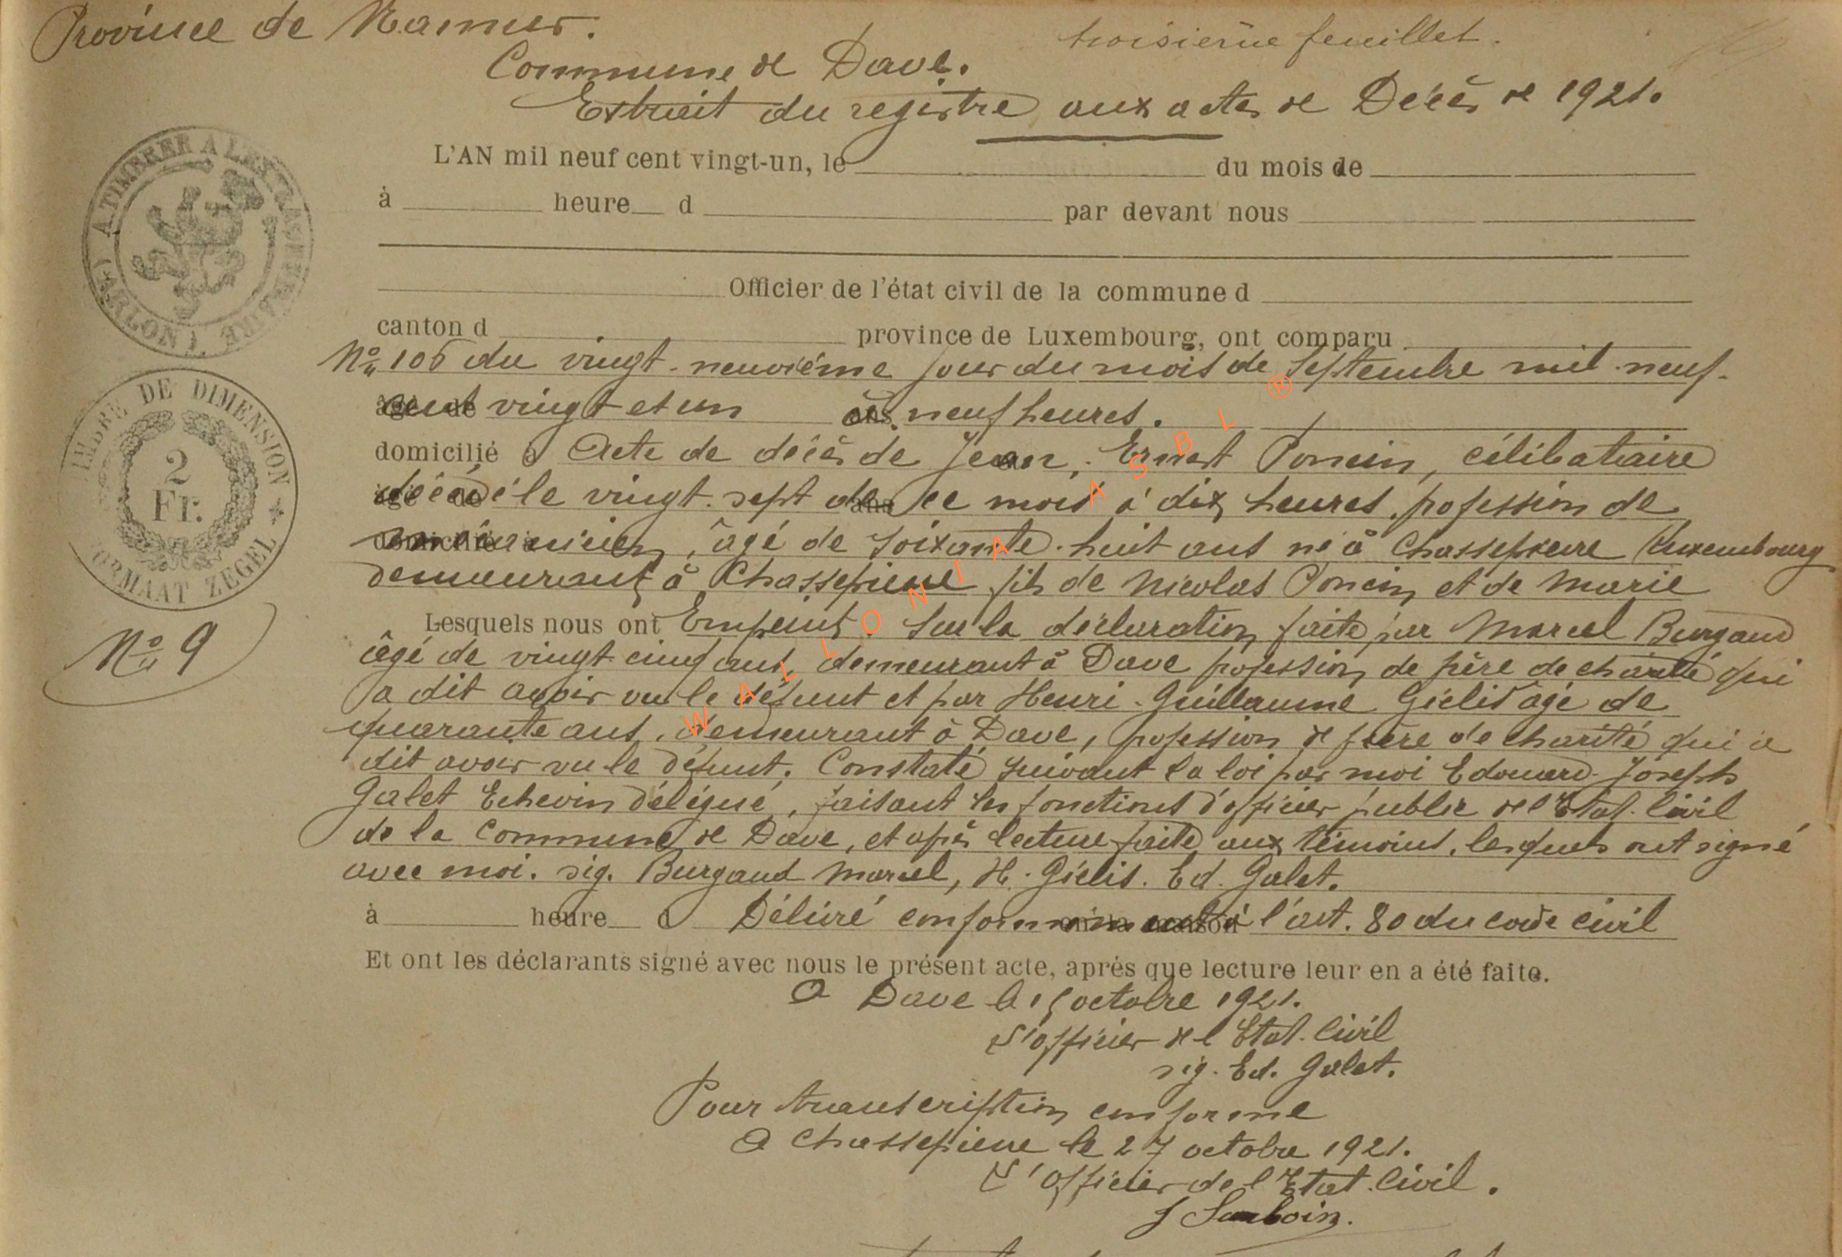 Province de Namur.
troisième feuillet.
Commune de Dave.
Extrait du registre aux actes de Décès de 1921.
L'AN mil neuf cent vingt-un, le du mois de
à heure d par devant nous
Officier de l'état civil de la commune d
canton d province de Luxembourg, ont comparu
No 106 du vingt-neuvième jour du mois de Septembre mil neuf
cent vingt et un à neuf heures.
domicilié à Acte de décès de Jean, Ernest Poncin, célibataire
décédé le vingt-sept de ce mois à dix heures, profession de
âgé de soixante-huit ans né à Chassepierre (Luxembourg
demeurant à Chassepierre fils de Nicolas Poncin et de Marie
Lesquels nous ont Sur la déclaration faite par Marcel Burgaud
âgé de vingt cinq ans, demeurant à Dave profession de frère de charité qui
a dit avoir vu le défunt et par Henri-Guillaume Giélis âgé de
quarante ans, demeurant à Dave, profession de frère de charité qui a
dit avoir vu le défunt. Constaté suivant la loi par moi Edouard-Joseph
Galet Echevin délégué, faisant les fonctions d'officier public de l'Etat-Civil
de la Commune de Dave, et après lecture faite aux témoins, lesquels ont signé
avec moi. sig. Burgaud Marcel, H. Giélis. Ed. Galet.
à heure d Délivré conformément à l'art. 80 du code civil
Et ont les déclarants signé avec nous le présent acte, après que lecture leur en a été faite.
A Dave le 15 octobre 1921.
L'officier de l'Etat-Civil
sig. Ed. Galet.
Pour transcription conforme
A Chassepierre le 27 octobre 1921.
L'officier de l'Etat-Civil.
A TIMBRER A L'EXTRAORDINAIRE (ARLON)
TIMBRE DE DIMENSION
2
Fr.
FORMAAT ZEGEL
No 9
WALLONIA ASBL ®